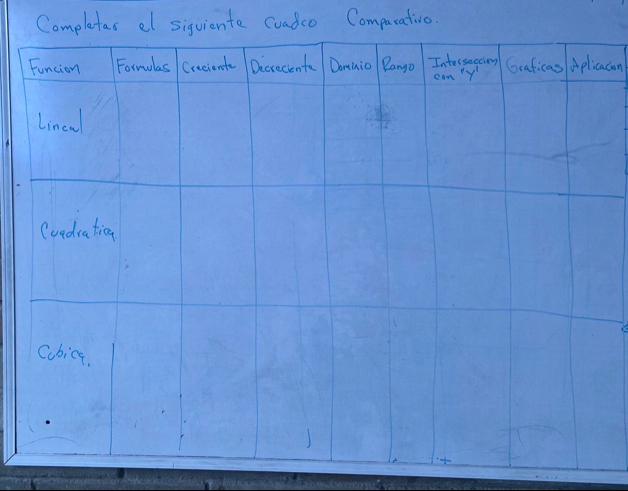 Completar el siguiente cuadro Comparativo.
Funcion Formulas Creciente Decreciente Dominio Rango Interseccion con "y" Graficas Aplicacion
Lineal
Cuadratica
Cubica.